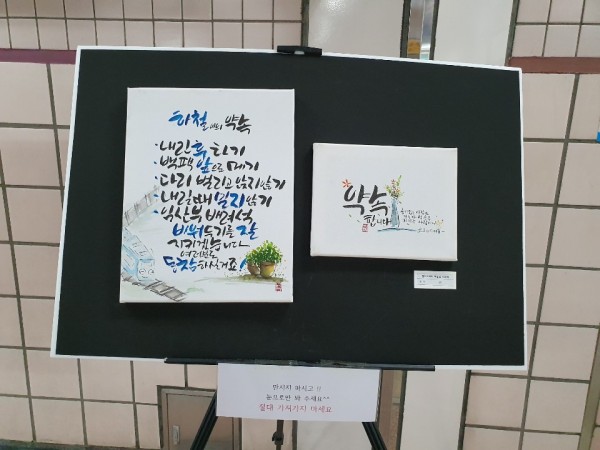 지하철에서의 약속
·내린 후 타기
·백팩 앞으로 메기
·다리 벌리고 앉지 않기
·내릴때 밀지 않기
·임산부 배려석
비워두기를 잘
지키겠습니다
여러분도
동참하실거죠!
약속
합니다
만지지 마시고!!
눈으로만 봐 주세요^^
절대 가져가지 마세요